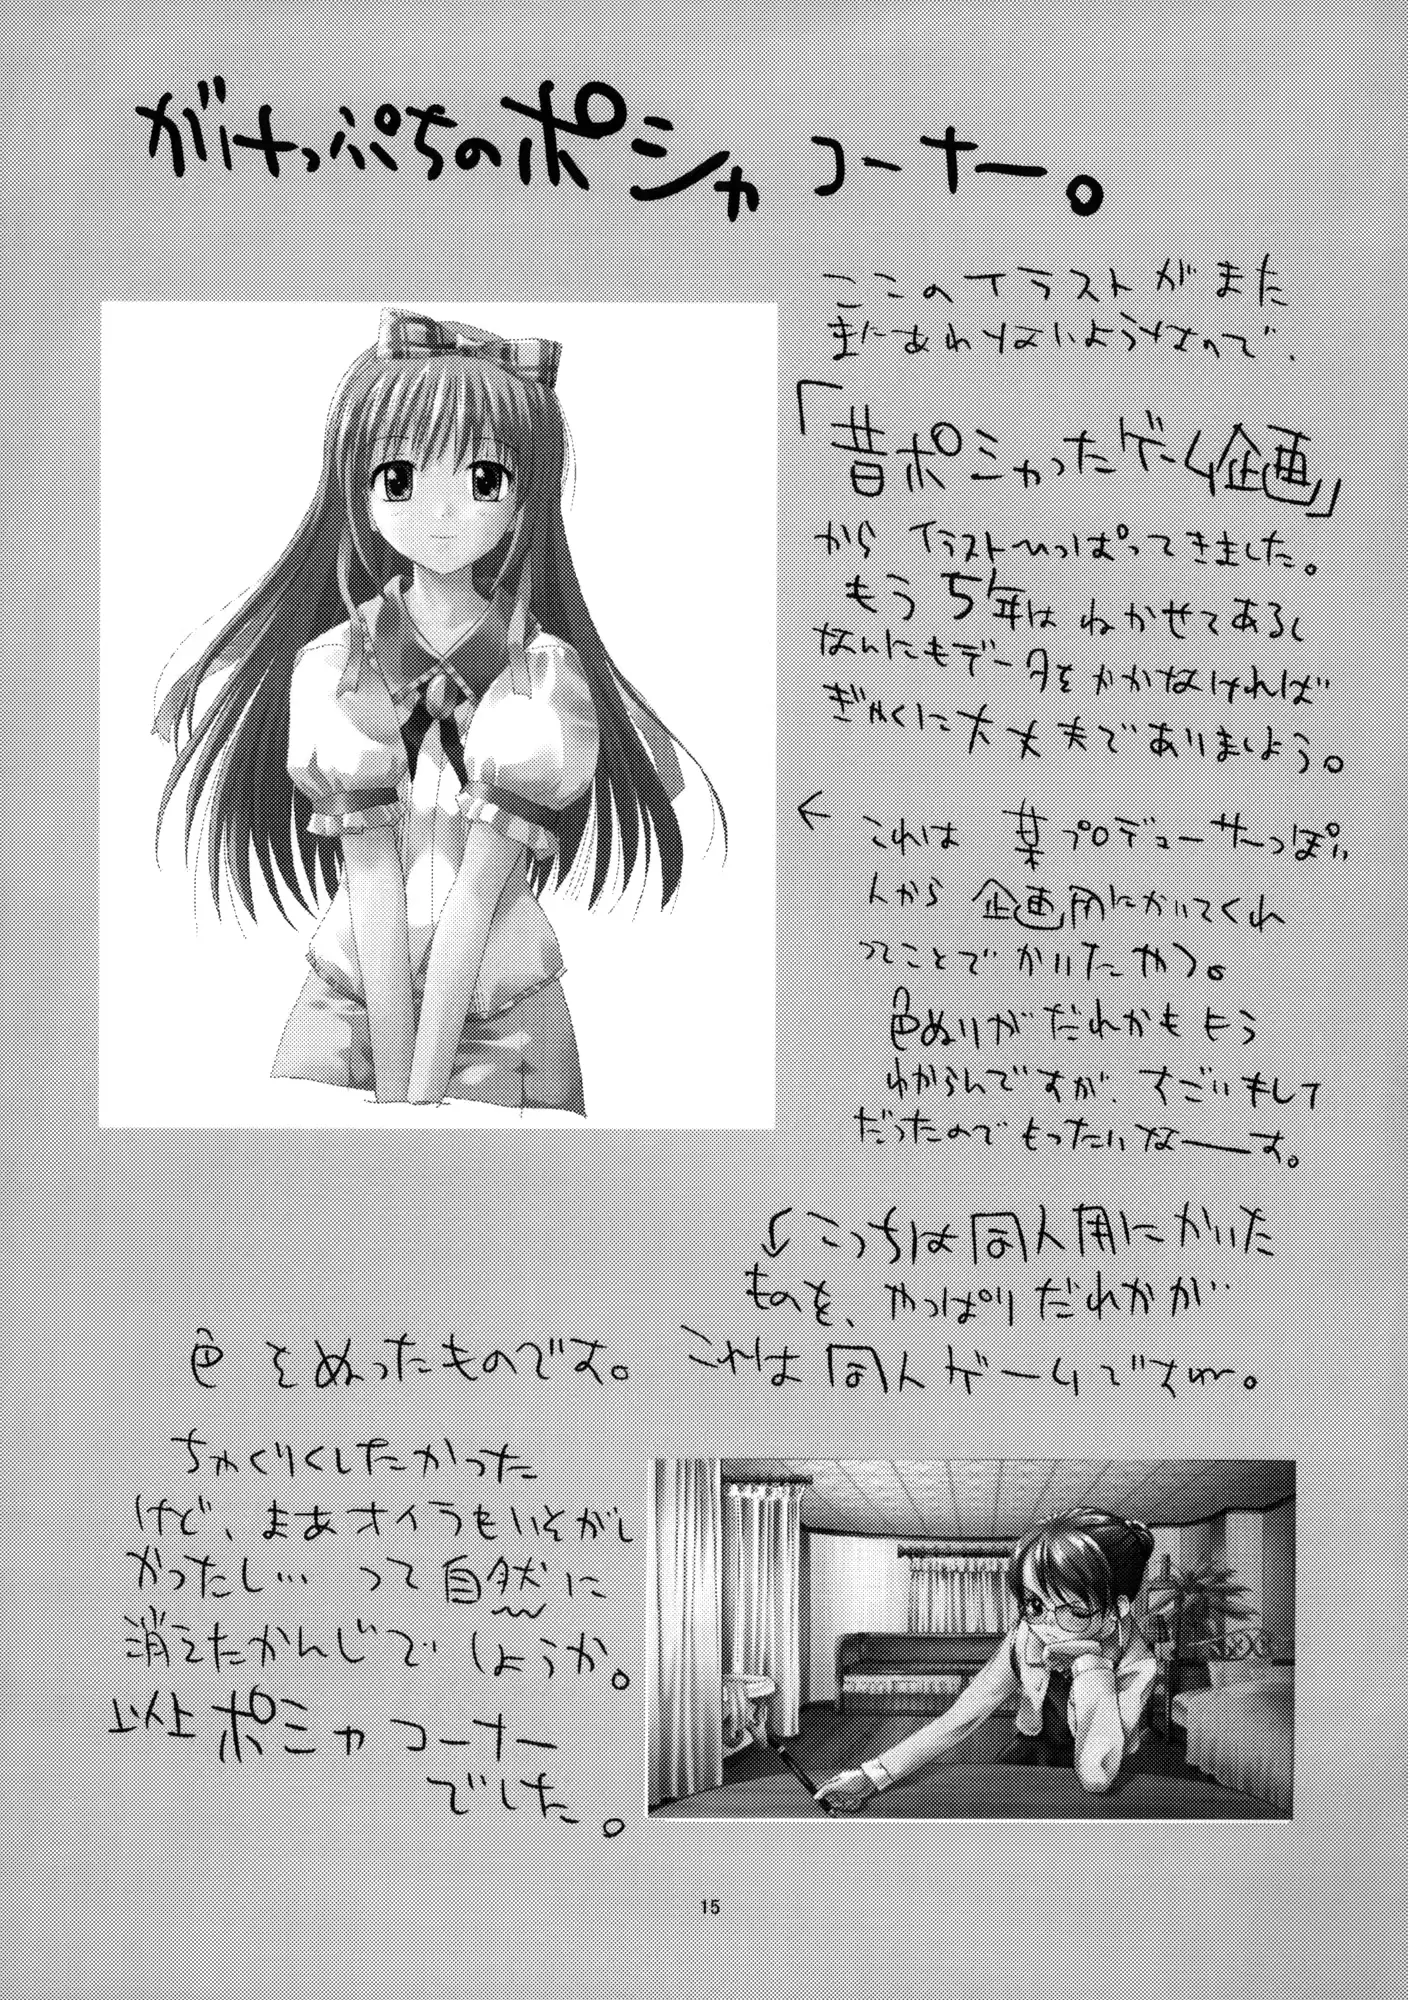 がけっぷちのポシャコーナー。
ここのイラストがまた
まにあわないようなので、
「昔ポシャったゲーム企画」
から イラストひっぱってきました。
もう5年はねかせてあるし
なんにもデータをかかなければ
ぎゃくに大丈夫でありましょう。
← これは 某プロデューサーっぽい
人から 企画用にかいてくれ
ってことでかいたやつ。
色ぬりがだれかももう
わからんですが、すごいまして
だったのでもったいなーす。
↓こっちは同人用にかいた
ものを、やっぱりだれかが
色をぬったものです。これは同人ゲームですが。
ちゃくりくしたかった
けど、まあオイラもいそがし
かったし… って自然に
消えたかんじでしょうか。
以上ポシャコーナー
でした。
15